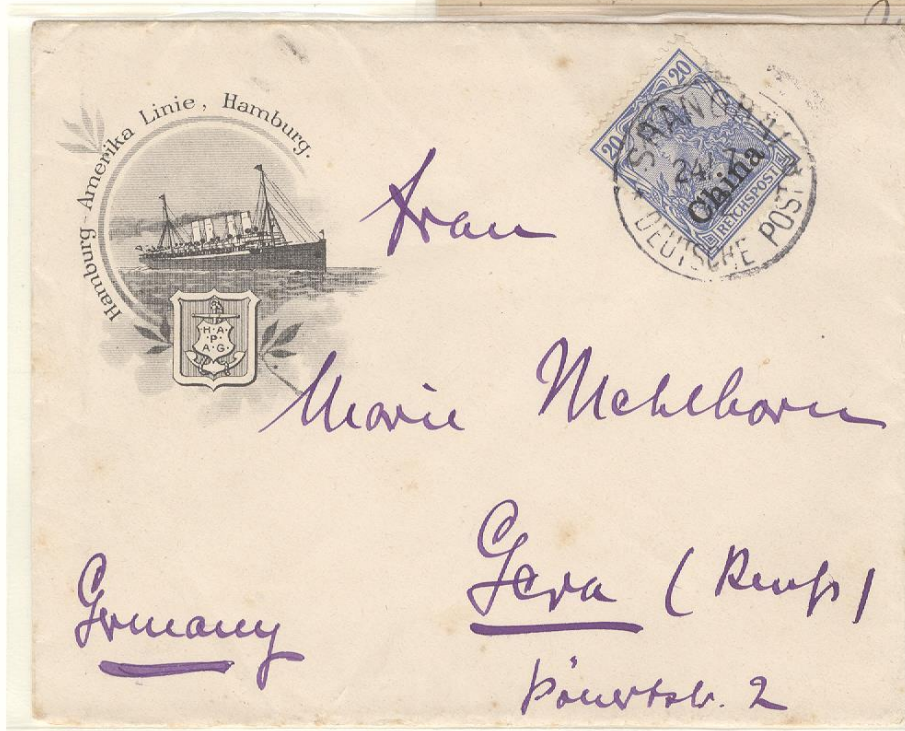 Hamburg-Amerika Linie, Hamburg.
H·A·
P·
A·G·
20
20
China
REICHSPOST
SHANGHAI
24/.7
DEUTSCHE POST
Frau
Marie Mehlhorn
Gera (Reuß)
2
Germany